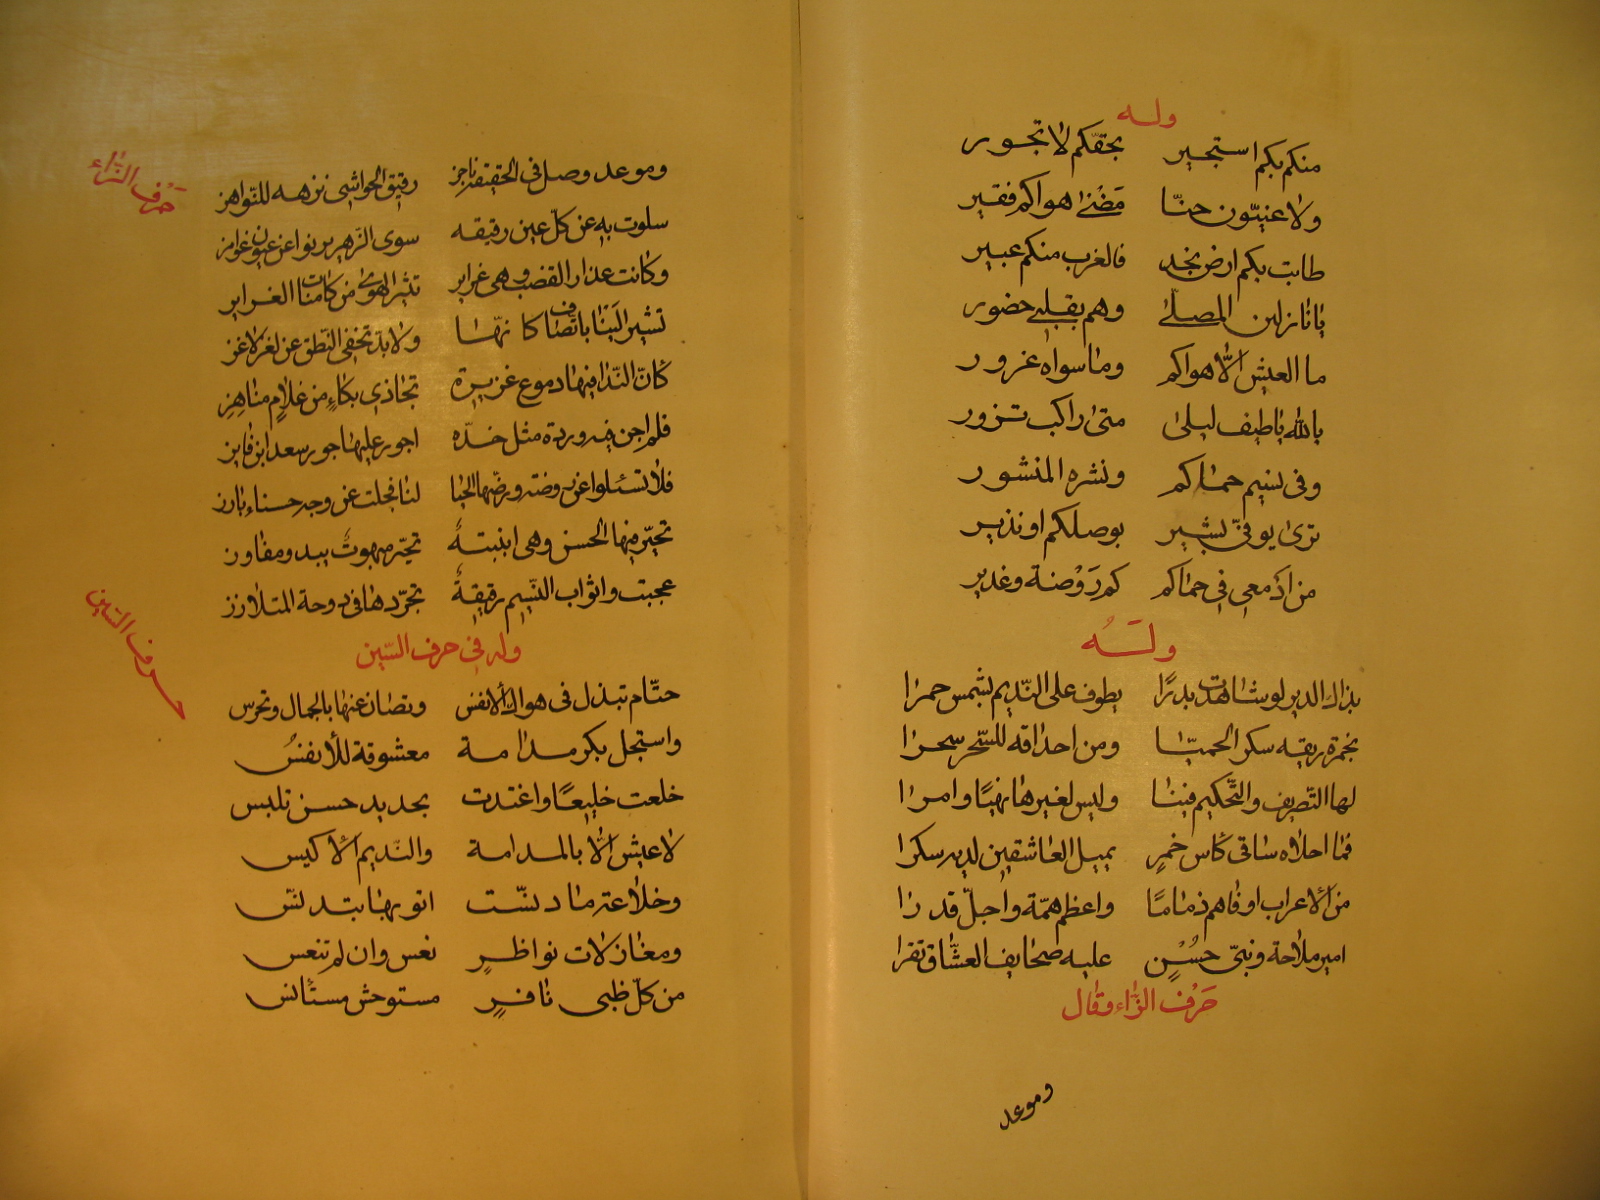 وله
منكم بكم استجير بحقّكم لا تجور
ولاعنيّون حنّا مَضْنیٰ هواكم فقير
طابت بكم ارض نجد فالغرب منكم عبير
يانازلين المصلّى وهم بقلبي حضور
ما العيش الّا هواكم وما سواه غرور
بالله ياطيف ليلى متى راكب تزور
وفى نسيم حماكم ونشره المنشور
ترى يوفىّ بشير بوصلكم او نذير
من ادمعى فى حماكم كم رَوْضة وغدير
وله
بذاك الدير لو شاهدت بدرًا يطوف على النّديم بشمس حمرا
بخمرة ريقه سكر الحميّا ومن احداقه للسّحر سحرا
لها التّصريف والتّحكيم فينا وليس لغيرها نهيًا وامرا
فما احلاه ساقى كأس خمرٍ يميل العاشقين لديه سكرا
من الأعراب اوفاهم ذمامًا واعظم همّة واجلّ قدرا
امير ملاحة ونبىّ حُسْنٍ عليه صحايف العشّاق تقرا
حَرْف الزّاء وقال
وموعد
حَرْف الزّاء
وموعد وصل فى الحقيقة ناجز رقيق الحواشى نزهه للنّواهز
سلوت به عن كلّ عين رقيقه سوى الزّهر يرنوا عن عيون غوامز
وكانت عذار القضب وهى غراير تثير الهوى من كامنات الغراير
تشير الينا باتصاف كانّها ولا بدّ تخفى النّطق عن لغز لاغز
كأنّ النّدا فيها دموع غزيرة تجاذى بكاءٍ من غلامٍ مناهِزِ
فلم اجن فيه وردة مثل خدّه اجور عليها جور سعد ابن فايز
فلا تسئلوا عن روضة ورضّها الحيا لنا فجلت عن وجه حسناء بارز
تحيّر فيها الحسن وهى ابنيته تحيّر مبهوتٌ ببيد ومفاوز
عجبت واثواب النّسيم رقيقةٌ تجرّدها فى دوحة المتلازز
وله فى حرف السّين
حرف السّين
حتّام تبذل فى هواك الأنفس وتصان عنها بالجمال وتحرس
واستجل بكر مدامة معشوقة للأنفسُ
خلعت خليعًا واغتدت بجديد حسن تلبس
لاعيش الّا بالمدامة والنّديم الأكيس
وخلاعة ما دنّست اثوبها بتدنّس
ومغازلات نواظرٍ نعس وان لم تنعس
من كلّ ظبى نافرٍ مستوحش مستأنس